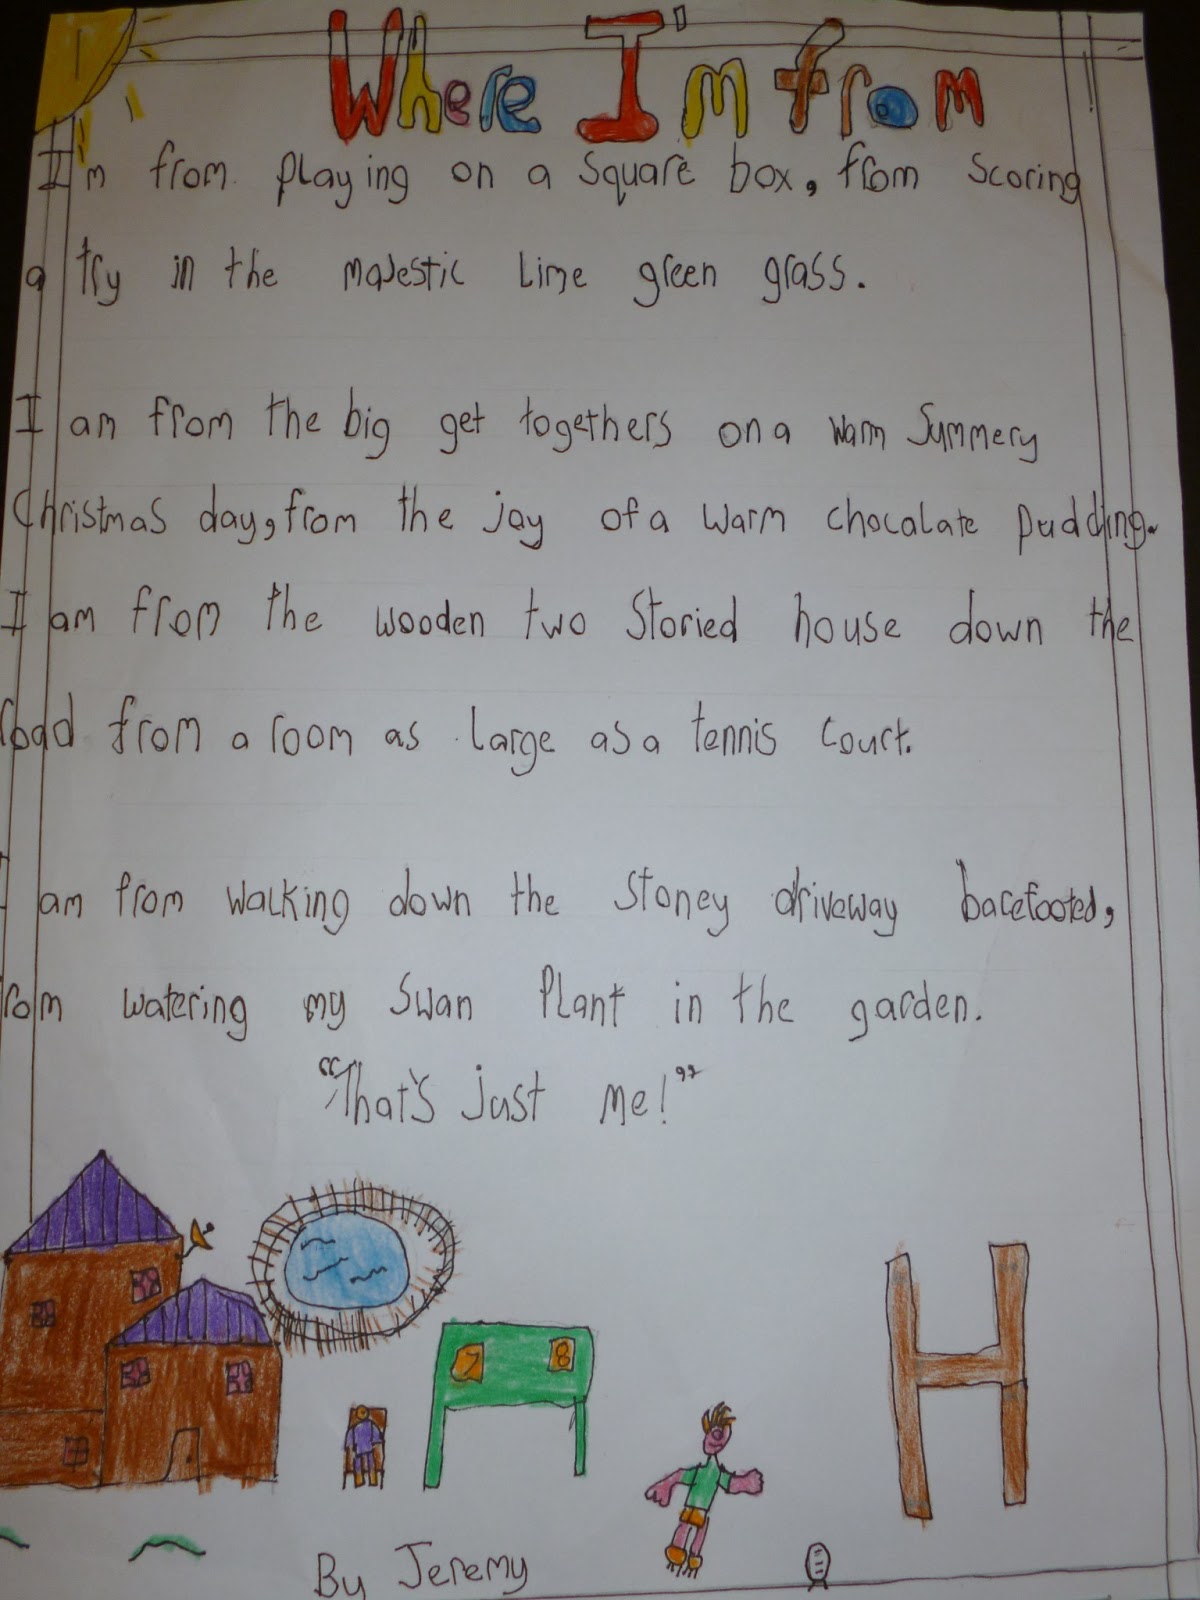 Where I'm from
I'm from playing on a square box, from scoring
a try in the majestic lime green grass.
I am from the big get togethers on a warm Summery
Christmas day, from the joy of a warm chocalate pudding.
I am from the wooden two storied house down the
road from a room as large as a tennis court.
I am from walking down the stoney driveway barefooted,
from watering my swan plant in the garden.
"That's just me!"
7 8
By Jeremy